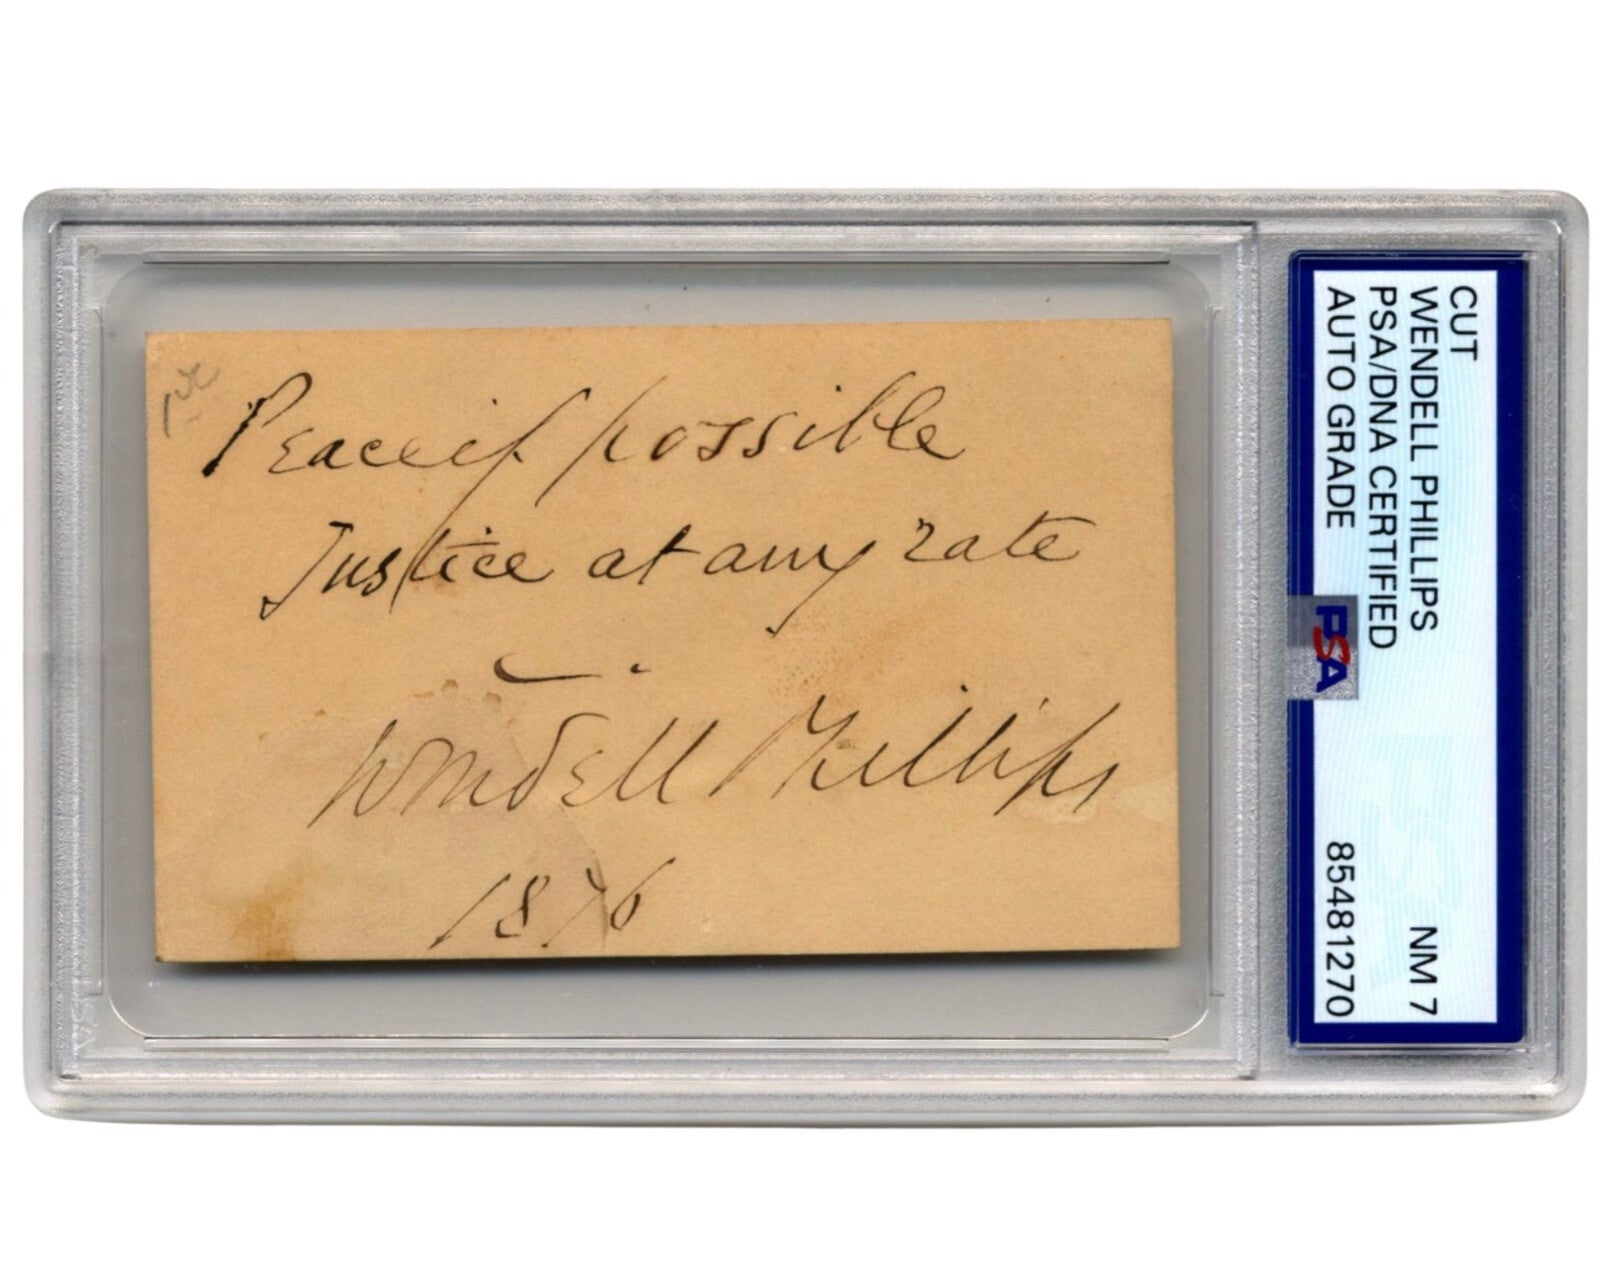 Peace if possible
Justice at any rate
Wendell Phillips
1876
CUT
WENDELL PHILLIPS
PSA/DNA CERTIFIED
AUTO GRADE NM 7
85481270
PSA